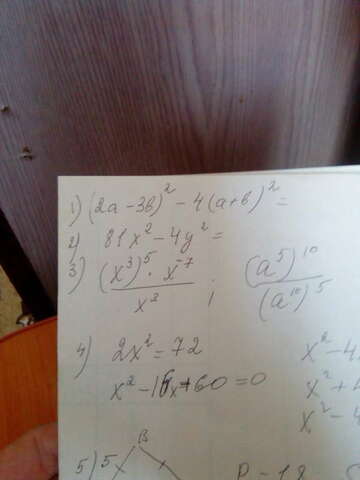 1) (2a - 3b)² - 4(a+b)² =
2) 81x² - 4y² =
3) (x³)⁵ · x⁻⁷ / x² ; (a⁵)¹⁰ / (a¹⁰)⁵
4) 2x² = 72 x² - 4
x² - 16x + 60 = 0 x² +
x² -
B
5) 5